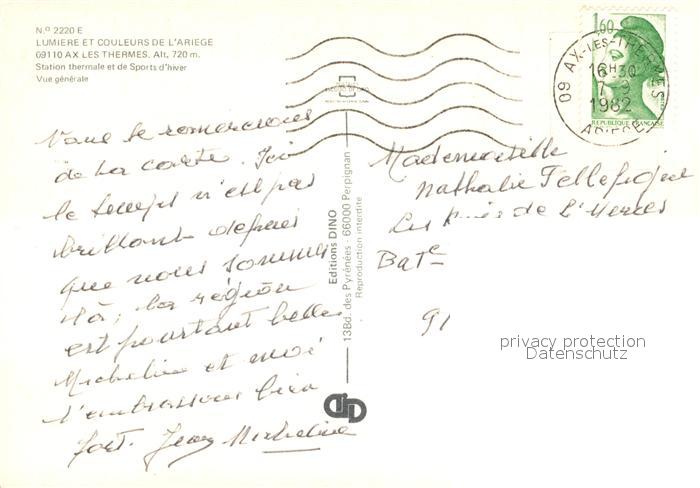 N.º 2220 E
LUMIERE ET COULEURS DE L'ARIEGE
09110 AX LES THERMES. Alt. 720 m.
Station thermale et de Sports d'hiver
Vue générale
Nous te remercions
de ta carte. Ici
le temps n'est pas
brillant depuis
que nous sommes
là, la région
est pourtant belle
Micheline et moi
t'embrassons bien
fort. Jean Micheline
Editions DINO
13Bd. des Pyrénées - 66000 Perpignan
Reproduction interdite
1,60
REPUBLIQUE FRANÇAISE
09 AX-LES-THERMES
16H30
7 9
1982
ARIEGE
Mademoiselle
Nathalie
Les de L'
Bat C
91
privacy protection
Datenschutz